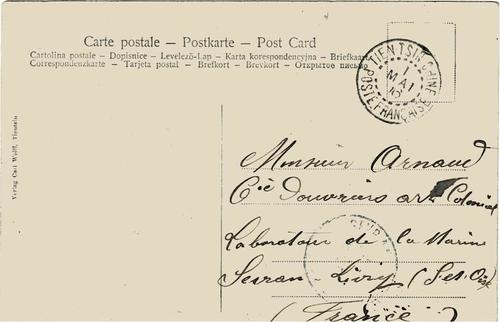 Carte postale – Postkarte – Post Card
Cartolina postale – Dopisnice – Levelező-Lap – Karta korespondencyjna – Briefkaarte
Correspondenzkarte – Tarjeta postal – Brefkort – Brevkort – Открытое письмо
TIEN-TSIN CHINE
MAI
POSTE FRANÇAISE
Verlag Carl Wolff, Tientsin
Monsieur Arnaud
Cie d'ouvriers art Colonial
Laboratoire de la Marine
Sevran-Livry (Set-Oise)
(France)